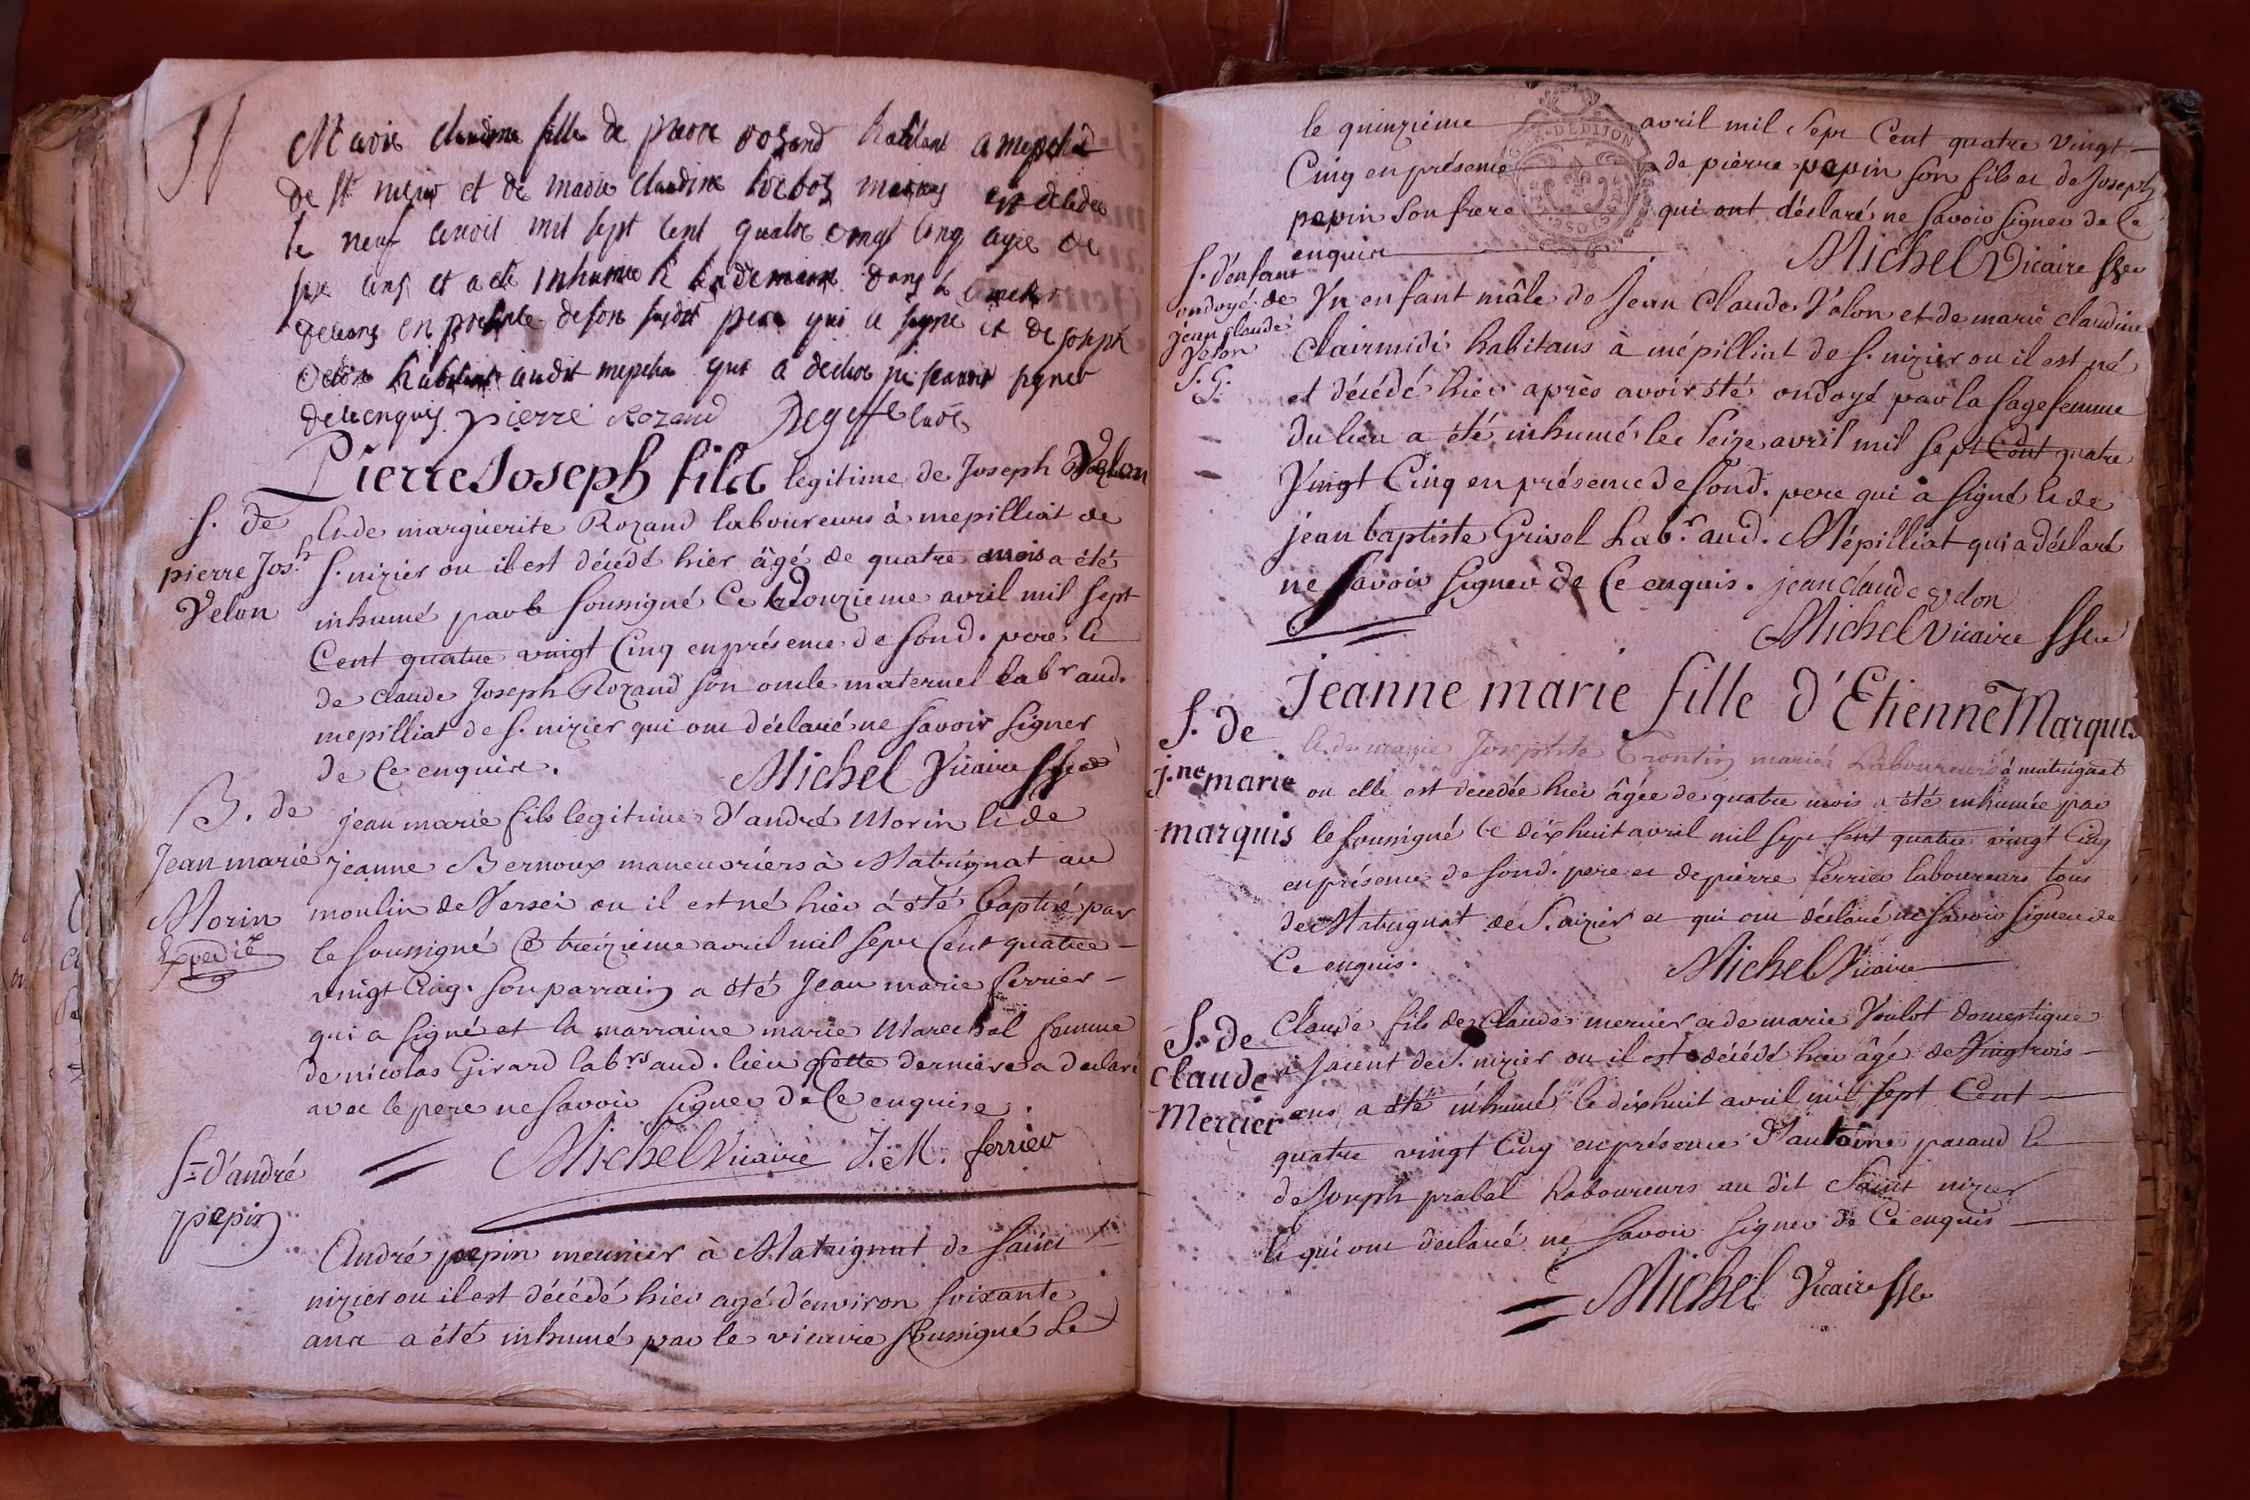 Marie claudine fille de pierre rozand habitant a mepilia
de st nizier et de marie claudine mariés est decedee
le neuf avril mil sept cent quatre vingt cinq agée de
six ans et a été inhumée le lendemain dans le
en presence de son susdit pere qui a signé et de joseph
habitant audit mepilia qui a declaré ni scavoir signer
de ce enquis pierre Rozand
Pierre Joseph fils legitime de Joseph Velon
S. de
pierre Jos.h
Velon
& de marguerite Rozand laboureurs à mepilliat de
S. nizier ou il est décédé hier âgé de quatre mois a été
inhumé par le soussigné Ce douzieme avril mil sept
Cent quatre vingt Cinq en présence de sond. pere &
de claude Joseph Rozand son oncle maternel lab.r aud.
mepilliat de S. nizier qui ont déclaré ne savoir signer
de Ce enquis.
Michel Vicaire
B. de
Jean marie
Morin
Expedié
jean marie fils legitime d'andré Morin & de
jeanne Bernoux manouvriers à Matrignat au
moulin de Versei ou il est né hier a été baptisé par
le soussigné Ce treizieme avril mil sept Cent quatre
vingt Cinq. son parrain a été Jean marie ferrier
qui a signé et la marraine marie Marechal femme
de nicolas Girard lab.rs aud. lieu cette derniere a declaré
avec le pere ne savoir signer de Ce enquise.
Michel Vicaire J. M. ferrier
S. d'andré
pepin
André pepin meunier à Matrignat de saint
nizier ou il est décédé hier agé d'environ soixante
ans a été inhumé par le vicaire soussigné le
le quinzieme avril mil sept Cent quatre vingt
Cinq en présence de pierre pepin son fils et de Joseph
pepin son frere qui ont déclaré ne savoir signer de Ce
enquis
DE DIJON
Michel Vicaire
S. d'enfant
ondoyé de
jean claude
Velon
Un enfant mâle de Jean Claude Velon et de marie claudine
Clairmidi habitans à mépilliat de S. nizier ou il est né
et décédé hier après avoir été ondoyé par la sage femme
du lieu a été inhumé le seize avril mil sept Cent quatre
Vingt Cinq en présence de sond. pere qui a signé & de
jean baptiste Grivel Lab.r aud. Mépilliat qui a déclaré
ne savoir signer de Ce enquis. jean claude velon
Michel vicaire
Jeanne marie fille d'Etienne Marquis
S. de
j.ne marie
marquis
& de Josephte mariés Laboureurs à matrignat
ou elle est decedée hier âgée de quatre mois a été inhumée par
le soussigné Ce dixhuit avril mil sept cent quatre vingt Cinq
en présence de sond. pere et de pierre ferrier laboureurs tous
de Matrignat de S. nizier et qui ont déclaré ne savoir signer de
Ce enquis.
Michel Vicaire
S. de
claude
Mercier
Claude fils de Claude mercier et de marie Veulot domestique
a saint de S. nizier ou il est décédé hier âgé de Vingt trois
ans a été inhumé le dixhuit avril mil sept Cent
quatre vingt Cinq en présence d'antoine &
de Joseph prabel Laboureurs au dit Saint nizier
& qui ont declaré ne savoir signer de Ce enquis
Michel Vicaire